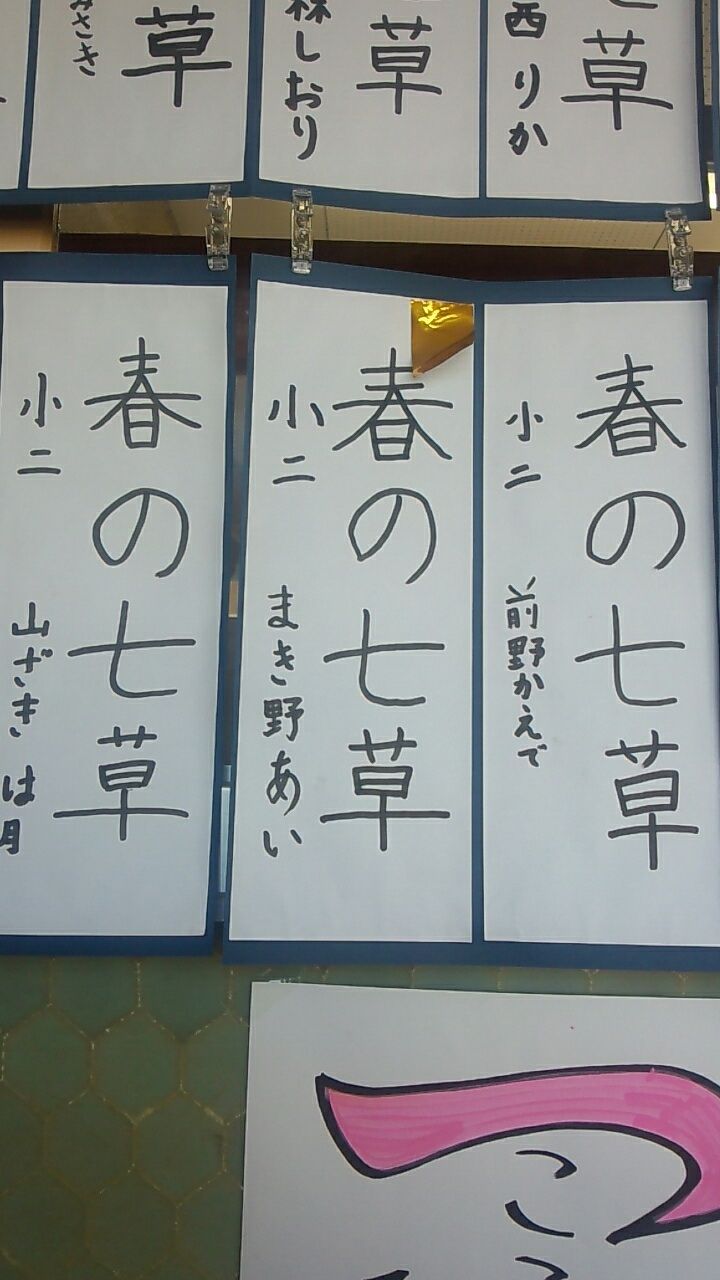 七草
西 りか
草
森しおり
草
みさき
春の七草
小二 前野かえで
春の七草
小二 まき野あい
春の七草
小二 山ざき は月
つ
こ